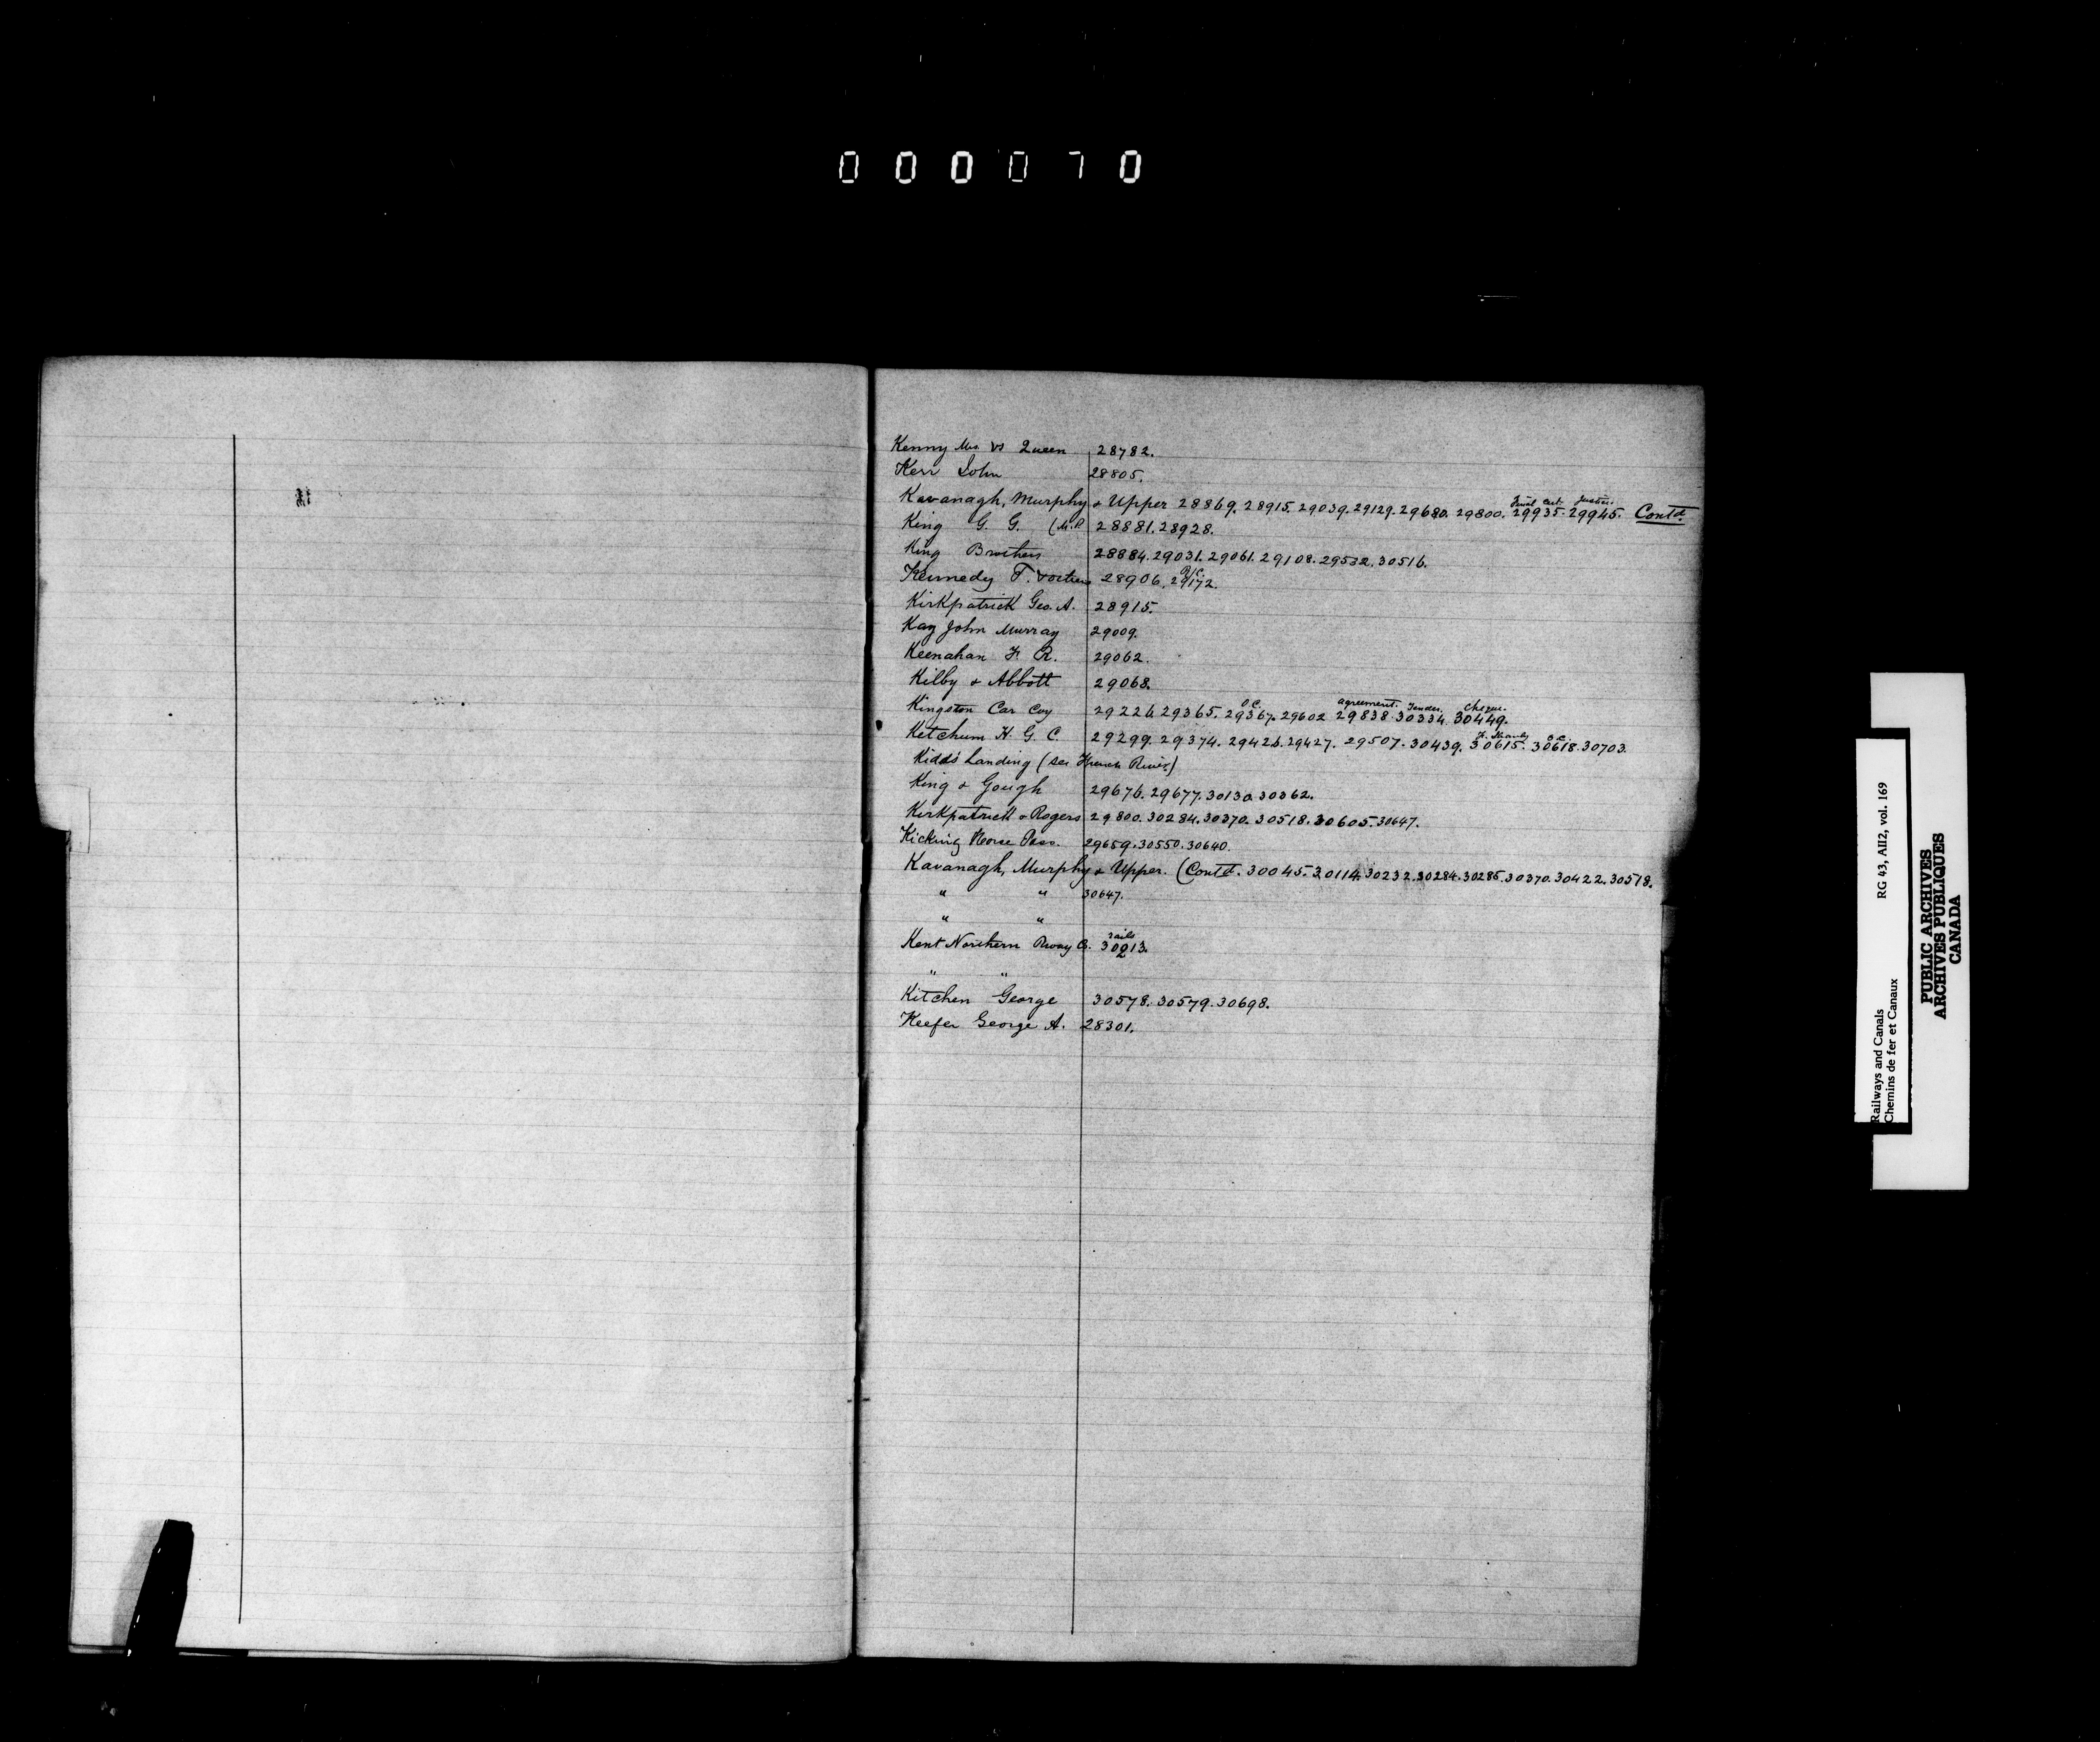 000070
Kenny Mrs. vs Queen 28782.
Kerr John 28805.
Final Cert. Justice.
Kavanagh, Murphy & Upper 28869. 28915. 29039. 29129. 29680. 29800. 29935. 29945. Contd.
King G. G. (M.P. 28881. 28928.
King Brothers 28884. 29031. 29061. 29108. 29532. 30516.
O/C.
Kennedy T. & others 28906. 29172.
Kirkpatrick Geo. A. 28915.
Kay John Murray 29009.
Keenahan F. R. 29062.
Kilby & Abbott 29068.
O.C. agreement. Tender. Cheque.
Kingston Car Coy 29226. 29365. 29367. 29602. 29838. 30334. 30449.
O.C.
Ketchum H. G. C. 29299. 29374. 29426. 29427. 29507. 30439. 30615. 30618. 30703.
Kidds Landing (see French River)
King & Gough 29676. 29677. 30130. 30362.
Kirkpatrick & Rogers 29800. 30284. 30370. 30518. 30605. 30647.
Kicking Horse Pass. 29659. 30550. 30640.
Kavanagh, Murphy & Upper. (Contd. 30045. 30114. 30232. 30284. 30285. 30370. 30422. 30518.
" " 30647.
" "
rails
Kent Northern Rway Co. 30213.
2
" "
Kitchen George 30578. 30579. 30698.
Keefer George A. 28301.
Railways and Canals RG 43, AII2, vol. 169
Chemins de fer et Canaux
PUBLIC ARCHIVES
ARCHIVES PUBLIQUES
CANADA